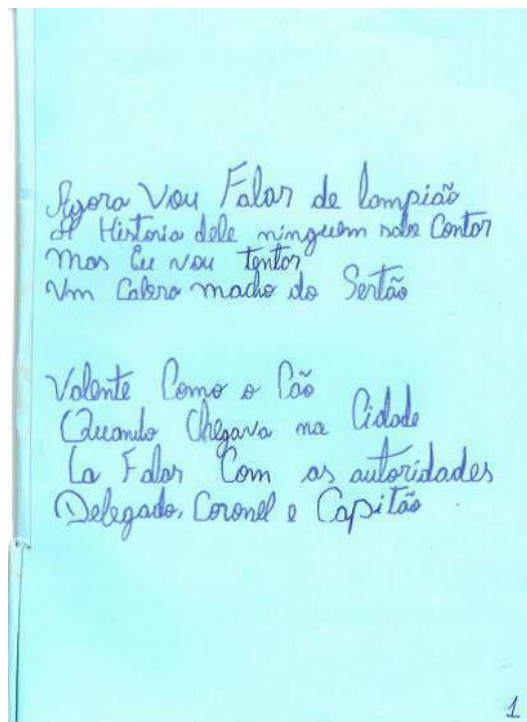 Agora Vou Falar de lampião
A Historia dele ninguem sabe Contar
Mas Eu vou tentar
Um Cabra macho do Sertão
Valente Como o Cão
Quando Chegava na Cidade
Ia Falar Com as autoridades
Delegado, Coronel e Capitão.
1